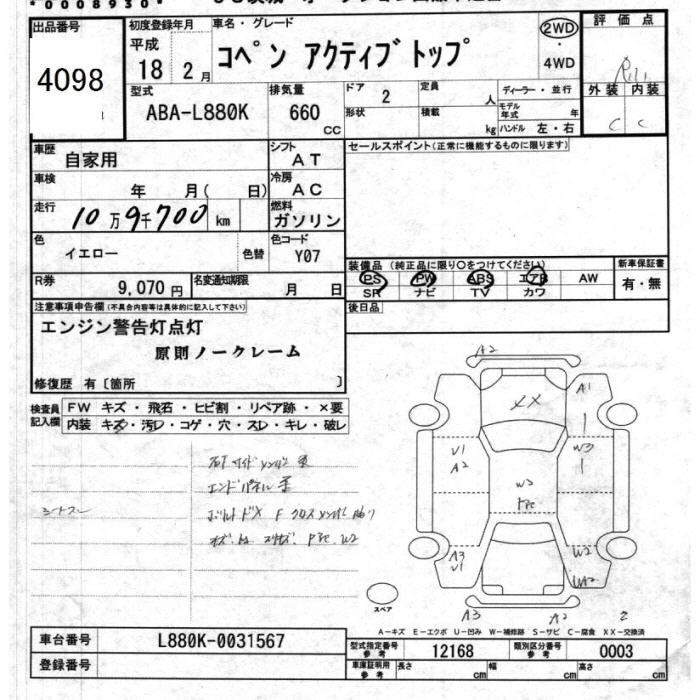 *0008930*
出品番号
4098
初度登録年月
平成
18 2月
車名・グレード
コペン アクティブトップ
2WD
・
4WD
評価点
外装 内装
C C
型式
ABA-L880K
排気量
660
cc
ドア
2
定員
人
形状
積載
kg
ディーラー・並行
モデル年式 年
ハンドル 左・右
車歴
自家用
シフト
AT
セールスポイント(正常に機能するものに限ります)
車検
年 月( 日)
冷房
AC
走行
10万9千700 km
燃料
ガソリン
色
イエロー
色替
色コード
Y07
装備品 (純正品に限り○をつけてください)
PS PW ABS エアB AW
SR ナビ TV カワ
新車保証書
有・無
R券
9,070円
名変通知期限
月 日
後日品
注意事項申告欄(不具合内容等は具体的に記入して下さい)
エンジン警告灯点灯
原則ノークレーム
修復歴 有〔箇所 〕
検査員記入欄
FW キズ・飛石・ヒビ割・リペア跡・×要
内装 キズ・汚レ・コゲ・穴・スレ・キレ・破レ
エンドパネル
A2
XX
A1
V1
A2
W3
W2
A3
V1
W2
A3
A2
2
スペア
A−キズ E−エクボ U−凹み W−補修跡 S−サビ C−腐食 XX−交換済
車台番号
L880K-0031567
登録番号
型式指定番号
参考
12168
類別区分番号
参考
0003
車庫証明用
参考
長さ cm
幅 cm
高さ cm